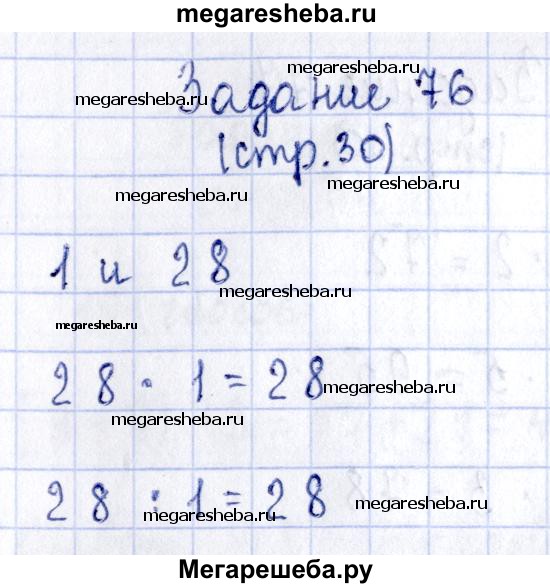 megaresheba.ru
megaresheba.ru
megaresheba.ru
Задание 76
(стр. 30)
megaresheba.ru
megaresheba.ru
1 и 28
megaresheba.ru
megaresheba.ru
28 · 1 = 28
megaresheba.ru
megaresheba.ru
28 : 1 = 28
megaresheba.ru
megaresheba.ru
Мегарешеба.ру